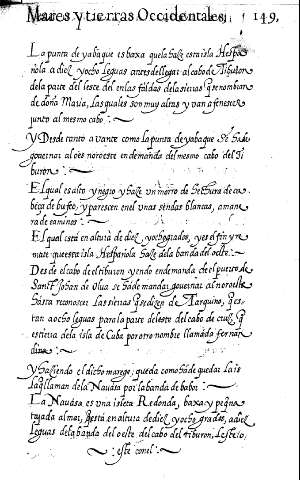 Mares y tierras Occidentales, 149,
La punta de yabaque es baxa que la haze esta isla Hespa
ñola a diez yocho leguas antes de llegar al cabo de Tiburon
de la parte del leste del en las faldas de la sierras que nombran
de doña Maria, las quales son muy altas y van a fenescer
junto al mesmo cabo.
Y Desde tanto avante como la punta de yabaque se ha de
governar al oes noroeste en demanda del mesmo cabo del Ti
buron.
El qual es alto y negro y haze un morro de hechura de ca
beça de bufeo, y parescen en el unas sendas blancas, a mane
ra de caminos.
El qual está en altura de diez, yocho grados, y es el fin y re
mate que esta isla Hespañola haze de la banda del oeste.
Desde el cabo del tiburon yendo en demanda de el puerto de
Sant Johan de Olua se ha de mandar governar al noroeste
hasta reconoscer las sierras que dizen de Tarquino, que es
tan a ocho leguas para la parte del este del cabo de cruz, que
esta en la isla de Cuba por otro nombre llamada fernan
dina.
Y haziendo el dicho marage, queda como ha de quedar la is
la q llaman de la Navasa por la banda de babor.
La Navasa es una isleta Redonda, baxa y pequeña
tajada al mar, y está en altura de diez, yocho grados, a diez
leguas de la banda del oeste del cabo del tiburon, Leste o
este con el.